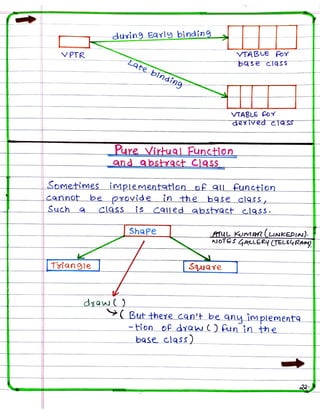 during Early binding
VPTR
VTABLE for
base class
Late binding
VTABLE for
derived class
Pure Virtual Function
and abstract Class
Sometimes implementation of all function
cannot be provide in the base class,
Such a class is called abstract class.
Shape
ATUL KUMAR (LINKEDIN).
NOTES GALLERY (TELEGRAM)
Triangle
Square
draw()
( But there can't be any implementa
-tion of draw() fun in the
base class)
22